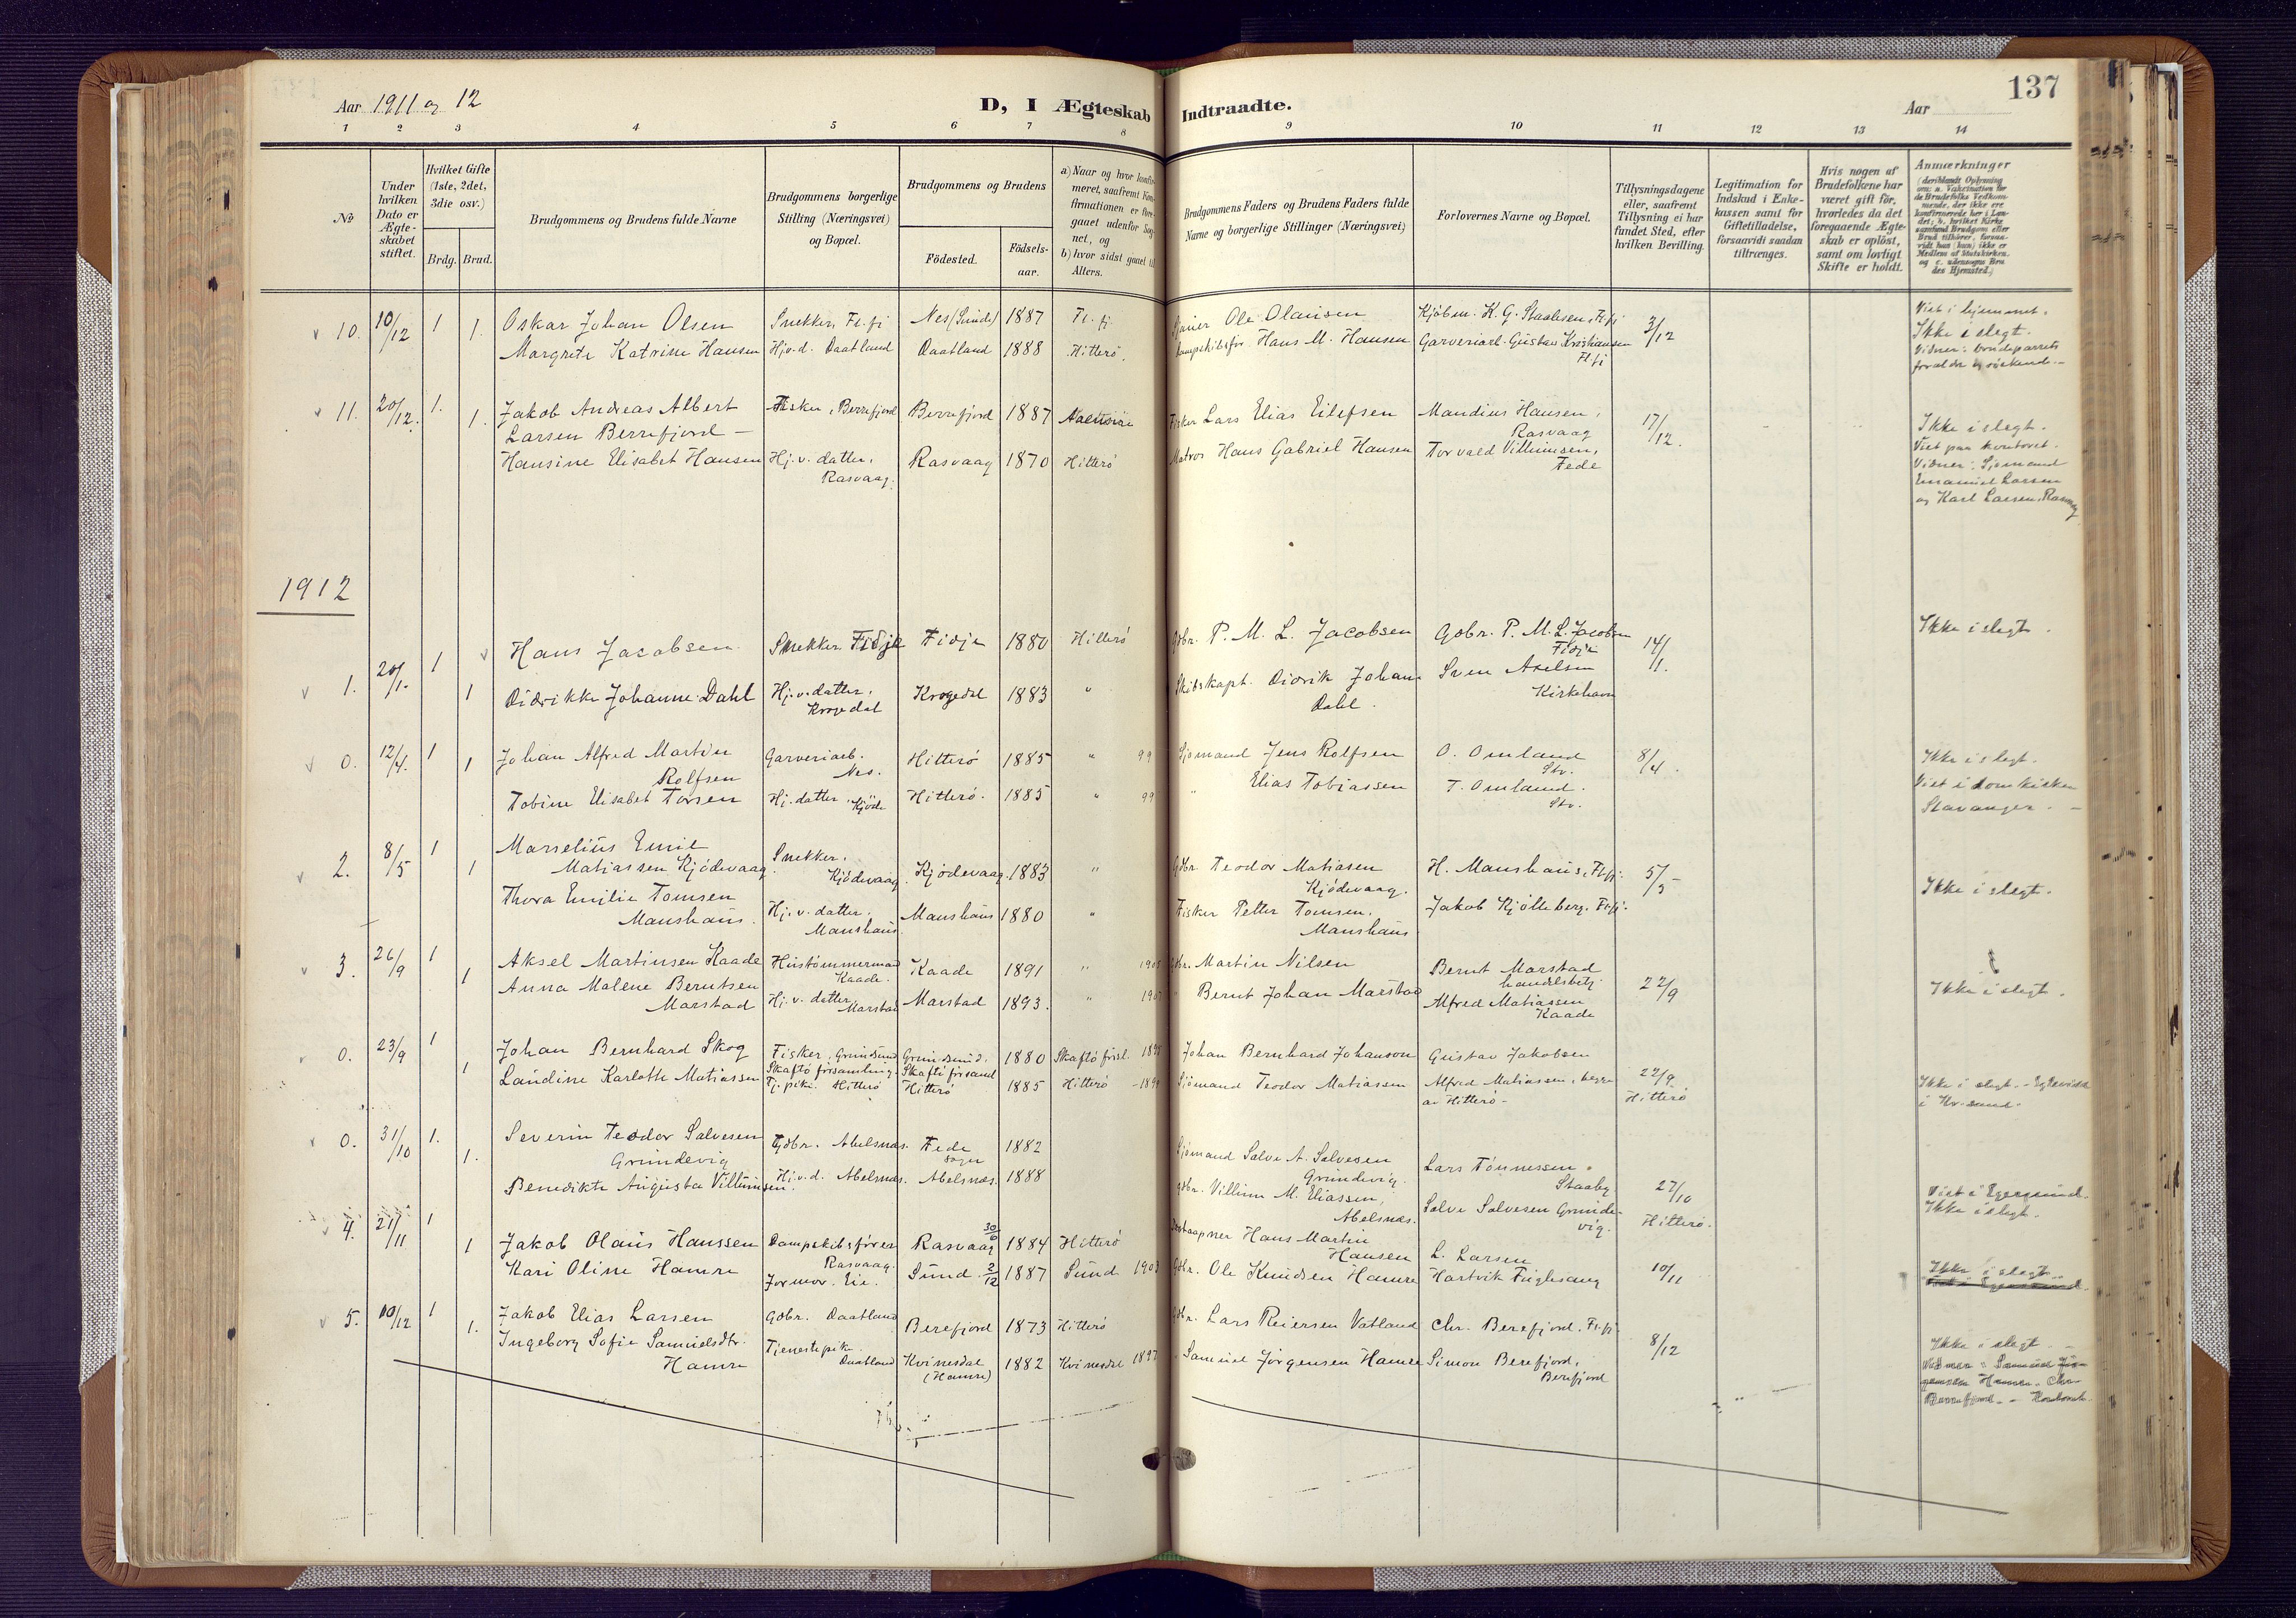 Aar 1911 og 12
D, I Ægteskab Indtraadte.
Aar
137
1 2 3 4 5 6 7 8 9 10 11 12 13 14
No
Under hvilken Dato er Ægteskabet stiftet.
Hvilket Gifte (1ste, 2det, 3die osv.)
Brdg. Brud.
Brudgommens og Brudens fulde Navne
Brudgommens borgerlige Stilling (Næringsvei) og Bopæl.
Brudgommens og Brudens
Födested.
Födsels-aar.
a) Naar og hvor konfirmeret, saafremt Konfirmationen er foregaaet udenfor Sognet, og
b) hvor sidst gaaet til Alters.
Brudgommens Faders og Brudens Faders fulde Navne og borgerlige Stillinger (Næringsvei)
Forlovernes Navne og Bopæl.
Tillysningsdagene eller, saafremt Tillysning ei har fundet Sted, efter hvilken Bevilling.
Legitimation for Indskud i Enkekassen samt for Giftetilladelse, forsaavidt saadan tiltrænges.
Hvis nogen af Brudefolkene har været gift för, hvorledes da det foregaaende Ægteskab er oplöst, samt om lovligt Skifte er holdt.
Anmærkninger
10. 10/12 1 1. Oskar Johan Olsen Snekker, Fl.fj Nes (Sunde) 1887 Fl. fj. Ole Olausen Kjöbm. K. G. Staalesen, Fl.fj 3/12 Viet i hjemmet.
Margrete Katrine Hansen Hj.v.d. Daatland Daatland 1888 Hitterö. Hans M. Hansen Garveriarb. Gustav Kristiansen Fl.fj Ikke i slegt.
Vidner: brudeparrets
11. 20/12. 1. 1. Jakob Andreas Albert Fisker, Berrefjord Berrefjord 1887 Fisker Lars Elias Eilefsen Mandius Hansen, Rasvaag 17/12. Ikke i slegt.
Larsen Berrefjord
Hansine Elisabet Hansen Hj.v. datter, Rasvaag. Rasvaag 1870 Hitterö Matros Hans Gabriel Hansen Torvald Villumsen, Fede Viet paa kontoret.
Vidner: Sjömand
Emanuel Larsen
og Karl Larsen, Rasvaag
1912
1. 20/1. 1 1 Hans Jacobsen Snekker Fidje Fidje 1880 Hitterö Gdbr. P. M. L. Jacobsen Gdbr. P. M. L. Jacobsen Fidje 14/1. Ikke i slegt.
Didrikke Johanne Dahl Hj.v.datter, Krogedal Krogedal 1883 " Skibskapt. Didrik Johan Dahl. Sven Axelsen Kirkehavn
0. 12/4. 1 1 Johan Alfred Martin Rolfsen Garveriarb. Nes. Hitterö 1885 " 99 Sjömand Jens Rolfsen O. Omland Stv. 8/4. Ikke i slegt.
Tobine Elisabet Torsen Hj. datter, Kjöde Hitterö. 1885 " 99 " Elias Tobiassen T. Omland. Stv. Viet i domkirken
Stavanger.
2. 8/5 1 1 Marselius Emil Matiassen Kjödevaag Snekker, Kjödevaag. Kjödevaag. 1883 " Gdbr. Teodor Matiasen Kjödevaag. H. Manshaus, Fl.fj. 5/5 Ikke i slegt.
Thora Emilie Tomsen Manshaus. Hj.v. datter. Manshaus. Manshaus 1880 " Fisker Petter Tomsen. Manshaus Jakob Kjölleberg. Fl.fj.
3. 26/9 1 1 Aksel Martinsen Kaade Hustömmermand Kaade. Kaade 1891 " Gdbr. Martin Nilsen Bernt Marstad handelsbetj. 22/9 Ikke i slegt.
Anna Malene Berntsen Marstad Hj.v. datter Marstad Marstad 1893. " " Bernt Johan Marstad Alfred Matiassen Kaade
0. 23/9 1 1 Johan Bernhard Skog Fisker, Grundsund Skaftö församl. Grundsund. Skaftö församl. 1880 Skaftö försl. Johan Bernhard Johanson Gustav Jakobsen 22/9 Hitterö
Landine Karlotte Matiassen Tj.pike. Hitterö Hitterö 1885 Hitterö Sjömand Teodor Matiassen Alfred Matiassen, begge av Hitterö. Ikke i slegt.
i Kr.sand.
0. 31/10 1. 1. Severin Teodor Salvesen Grundevig Gdbr. Abelsnæs. Fede sogn 1882 Sjömand Salve A. Salvesen Grundevig. Lars Tönnessen, 27/10 Hitterö. Viet i Egersund.
Benedikte Augusta Villumsen. Hj.v.d. Abelsnæs. Abelsnæs. 1888 Gdbr. Villum M. Eliassen, Abelsnæs. Salve Salvesen Grundevig. Ikke i slegt.
4. 21/11 1 1 Jakob Olaus Hanssen Dampskibsförer Rasvaag. Rasvaag 30/6 1884 Hitterö Hans Martin Hansen L. Larsen 10/11 Ikke i slegt.
Kari Oline Hamre Jormor. Eie. Sund. 2/12 1887 Sund Gdbr. Ole Knudsen Hamre Hartvik Fuglesang
5. 10/12 1 1. Jakob Elias Larsen Gdbr. Daatland Berefjord 1873 Hitterö Gdbr. Lars Reiersen Vatland Chr. Berefjord. Fl.fj. 8/12 Ikke i slegt.
Ingeborg Sofie Samuelsdtr. Hamre Tjenestepike. Daatland Kvinesdal (Hamre) 1882 Kvinesdal 1897 " Samuel Jörgensen Hamre Simon Berefjord, Berefjord